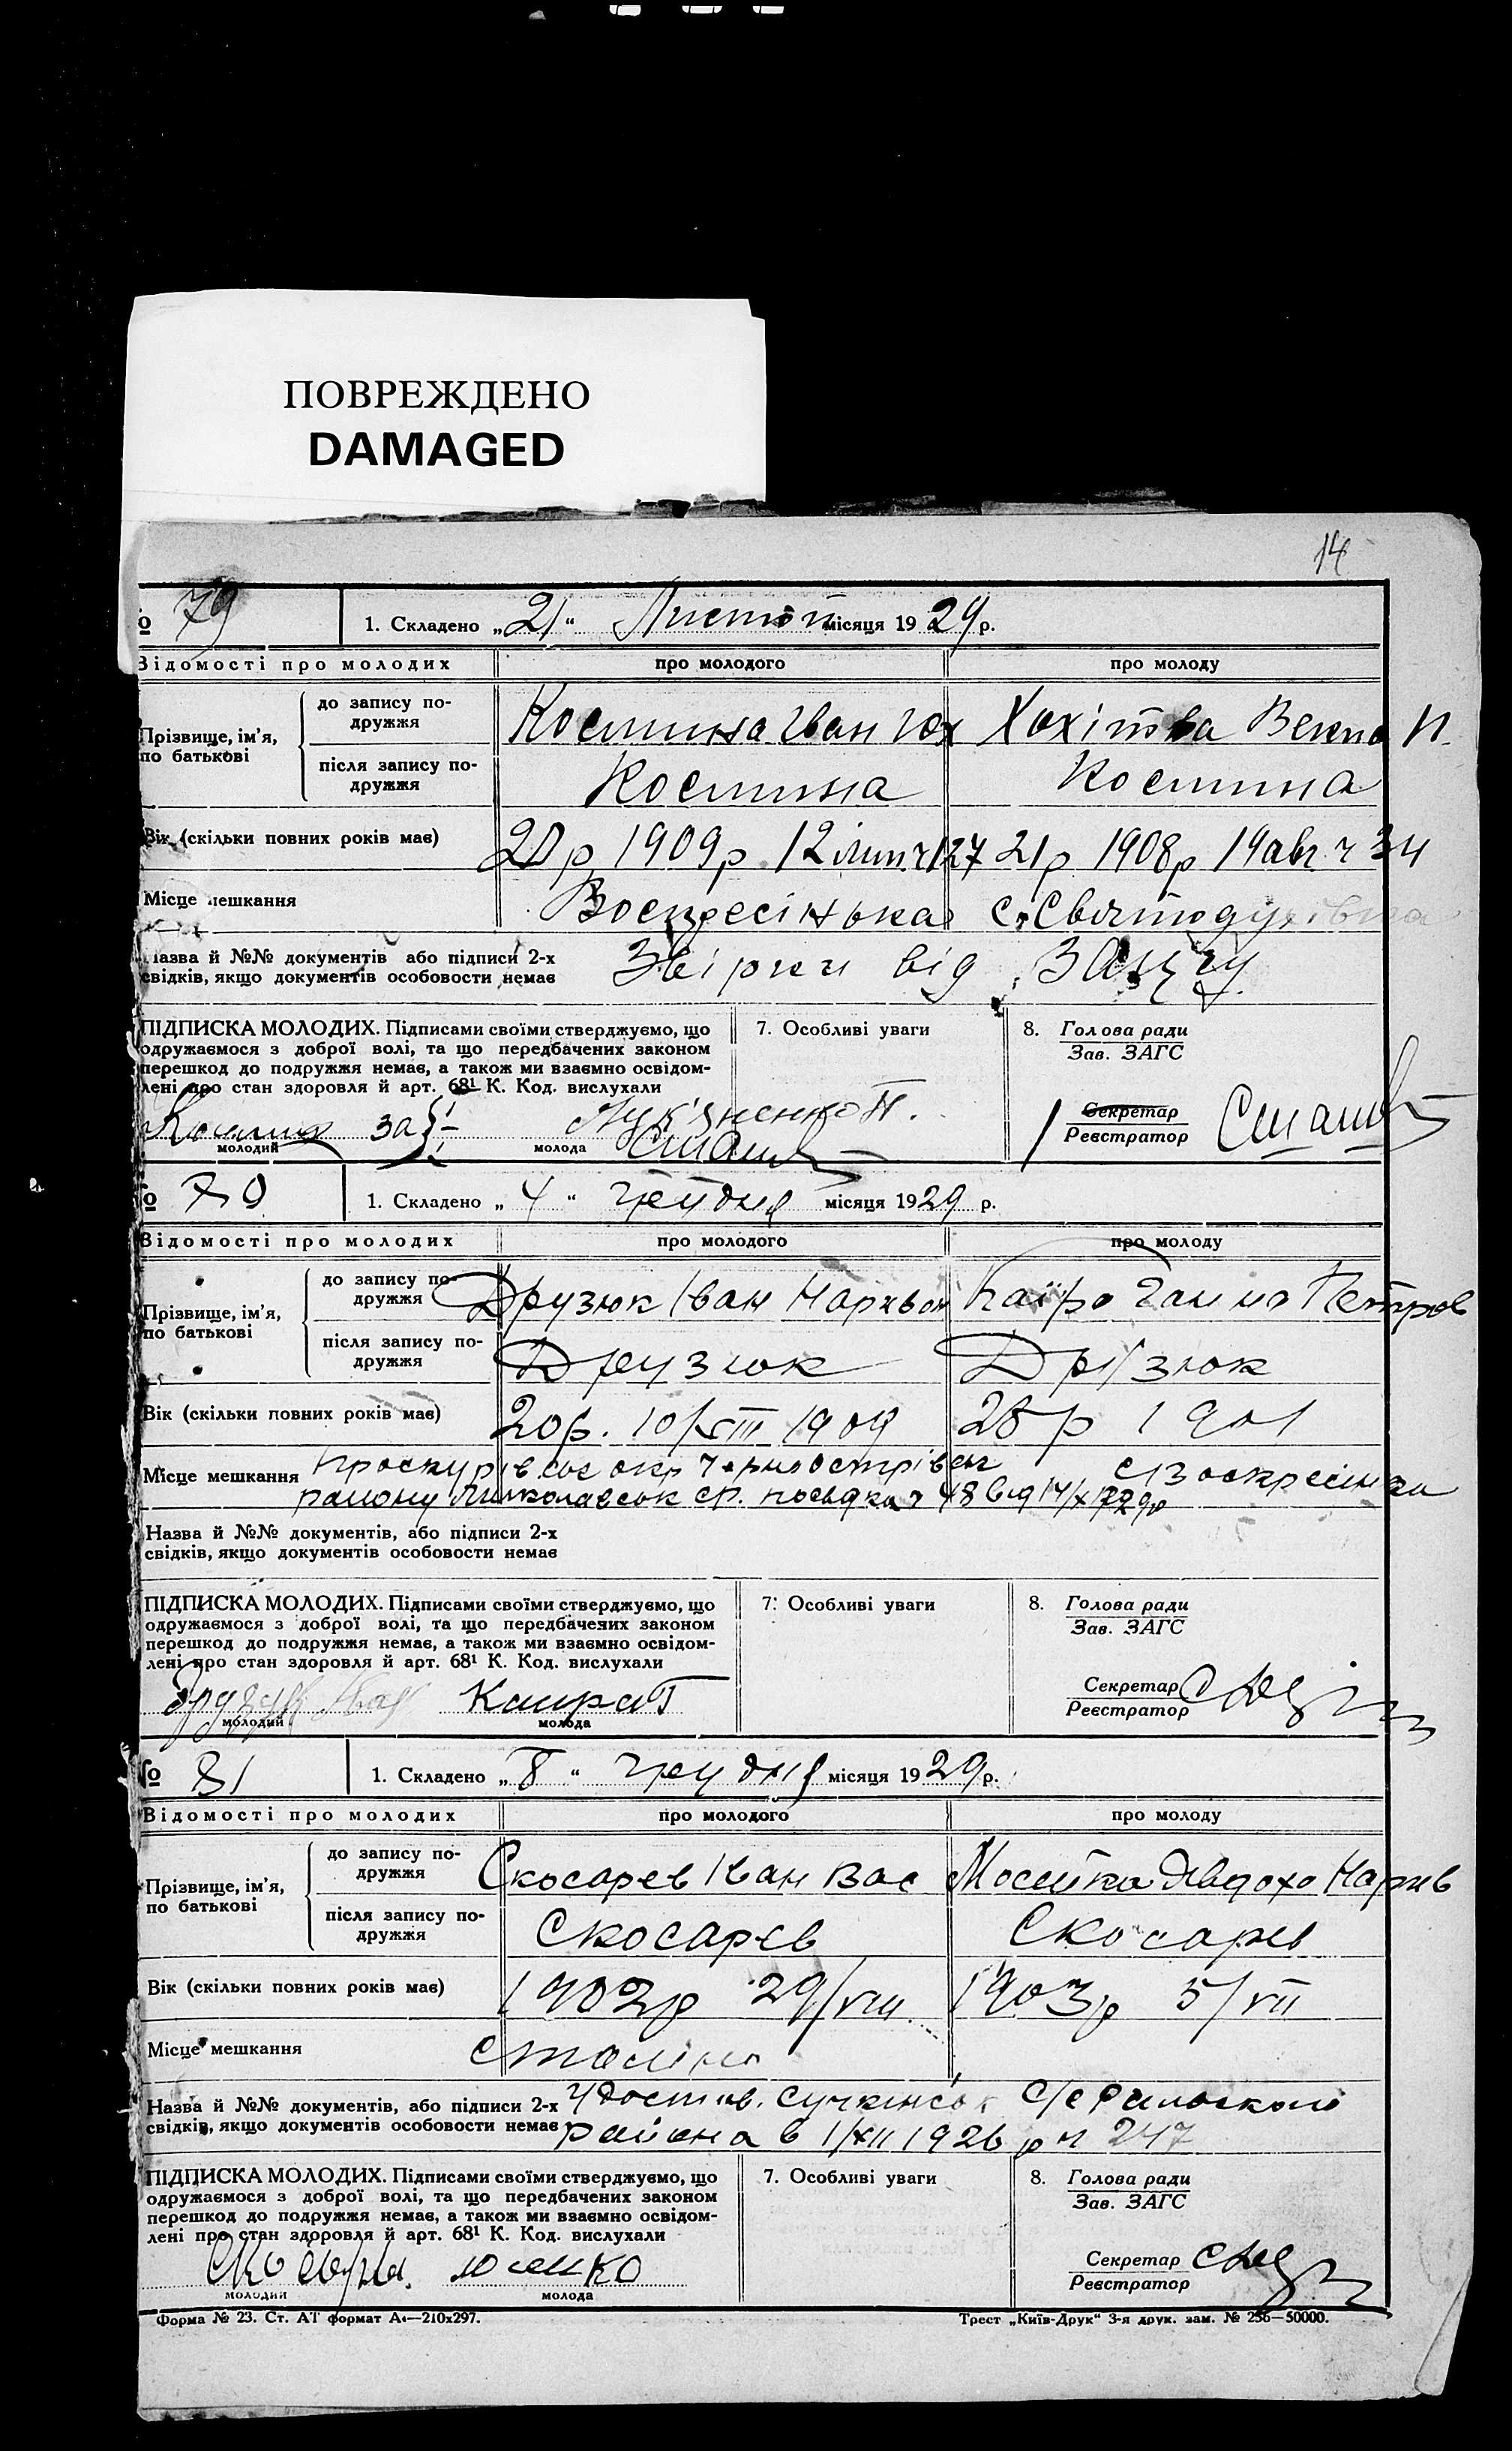 ПОВРЕЖДЕНО
DAMAGED
14
№ 79 1. Складено „21“ Листоп місяця 1929 р.
Відомості про молодих про молодого про молоду
Прізвище, ім'я, по батькові
до запису подружжя Костина Іван Векла П.
після запису подружжя Костина Костина
Вік (скільки повних років має) 20 р 1909 р 12 лип. ч 127 21 р 1908 р 19 авг. ч 34
Місце мешкання Воскресінька с. Святодухівка
Назва й №№ документів або підписи 2-х
свідків, якщо документів особовости немає від ЗАГСУ
ПІДПИСКА МОЛОДИХ. Підписами своїми стверджуємо, що
одружаємося з доброї волі, та що передбачених законом
перешкод до подружжя немає, а також ми взаємно освідом-
лені про стан здоров'я й арт. 68¹ К. Код. вислухали
7. Особливі уваги
8. Голова ради
Зав. ЗАГС
Секретар
Реєстратор
за Лук'яненко П.
молодий молода
№ 79 1. Складено „4“ грудня місяця 1929 р.
Відомості про молодих про молодого про молоду
Прізвище, ім'я, по батькові
до запису подружжя Друзюк Іван Каїра Ганна Петров
після запису подружжя Друзюк Друзюк
Вік (скільки повних років має) 20 р. 10/VIII 1909 28 р 1901
Місце мешкання Проскурівськ окр Чорноострівськ с Воскресінка
району Миколаєвськ ср. посвідка ч 48 від 14/X 1929р
Назва й №№ документів, або підписи 2-х
свідків, якщо документів особовости немає
ПІДПИСКА МОЛОДИХ. Підписами своїми стверджуємо, що
одружаємося з доброї волі, та що передбачених законом
перешкод до подружжя немає, а також ми взаємно освідом-
лені про стан здоровля й арт. 68¹ К. Код. вислухали
7. Особливі уваги
8. Голова ради
Зав. ЗАГС
Секретар
Реєстратор
Каира Г
молодий молода
№ 81 1. Складено „8“ грудня місяця 1929 р.
Відомості про молодих про молодого про молоду
Прізвище, ім'я, по батькові
до запису подружжя Скосарєв Іван Вас Явдоха
після запису подружжя Скосарєв Скосарєв
Вік (скільки повних років має) 1902р 29/VIII 1903р 5/VII
Місце мешкання Сталіно
Назва й №№ документів, або підписи 2-х удостов. Сучкинськ с/с Рильского
свідків, якщо документів особовости немає района в 1/XII 1926 р ч 247
ПІДПИСКА МОЛОДИХ. Підписами своїми стверджуємо, що
одружаємося з доброї волі, та що передбачених законом
перешкод до подружжя немає, а також ми взаємно освідом-
лені про стан здоровля й арт. 68¹ К. Код. вислухали
7. Особливі уваги
8. Голова ради
Зав. ЗАГС
Секретар
Реєстратор
молодий молода
Форма № 23. Ст. АТ формат А₄—210х297. Трест „Київ-Друк“ 3-я друк. зам. № 256—50000.